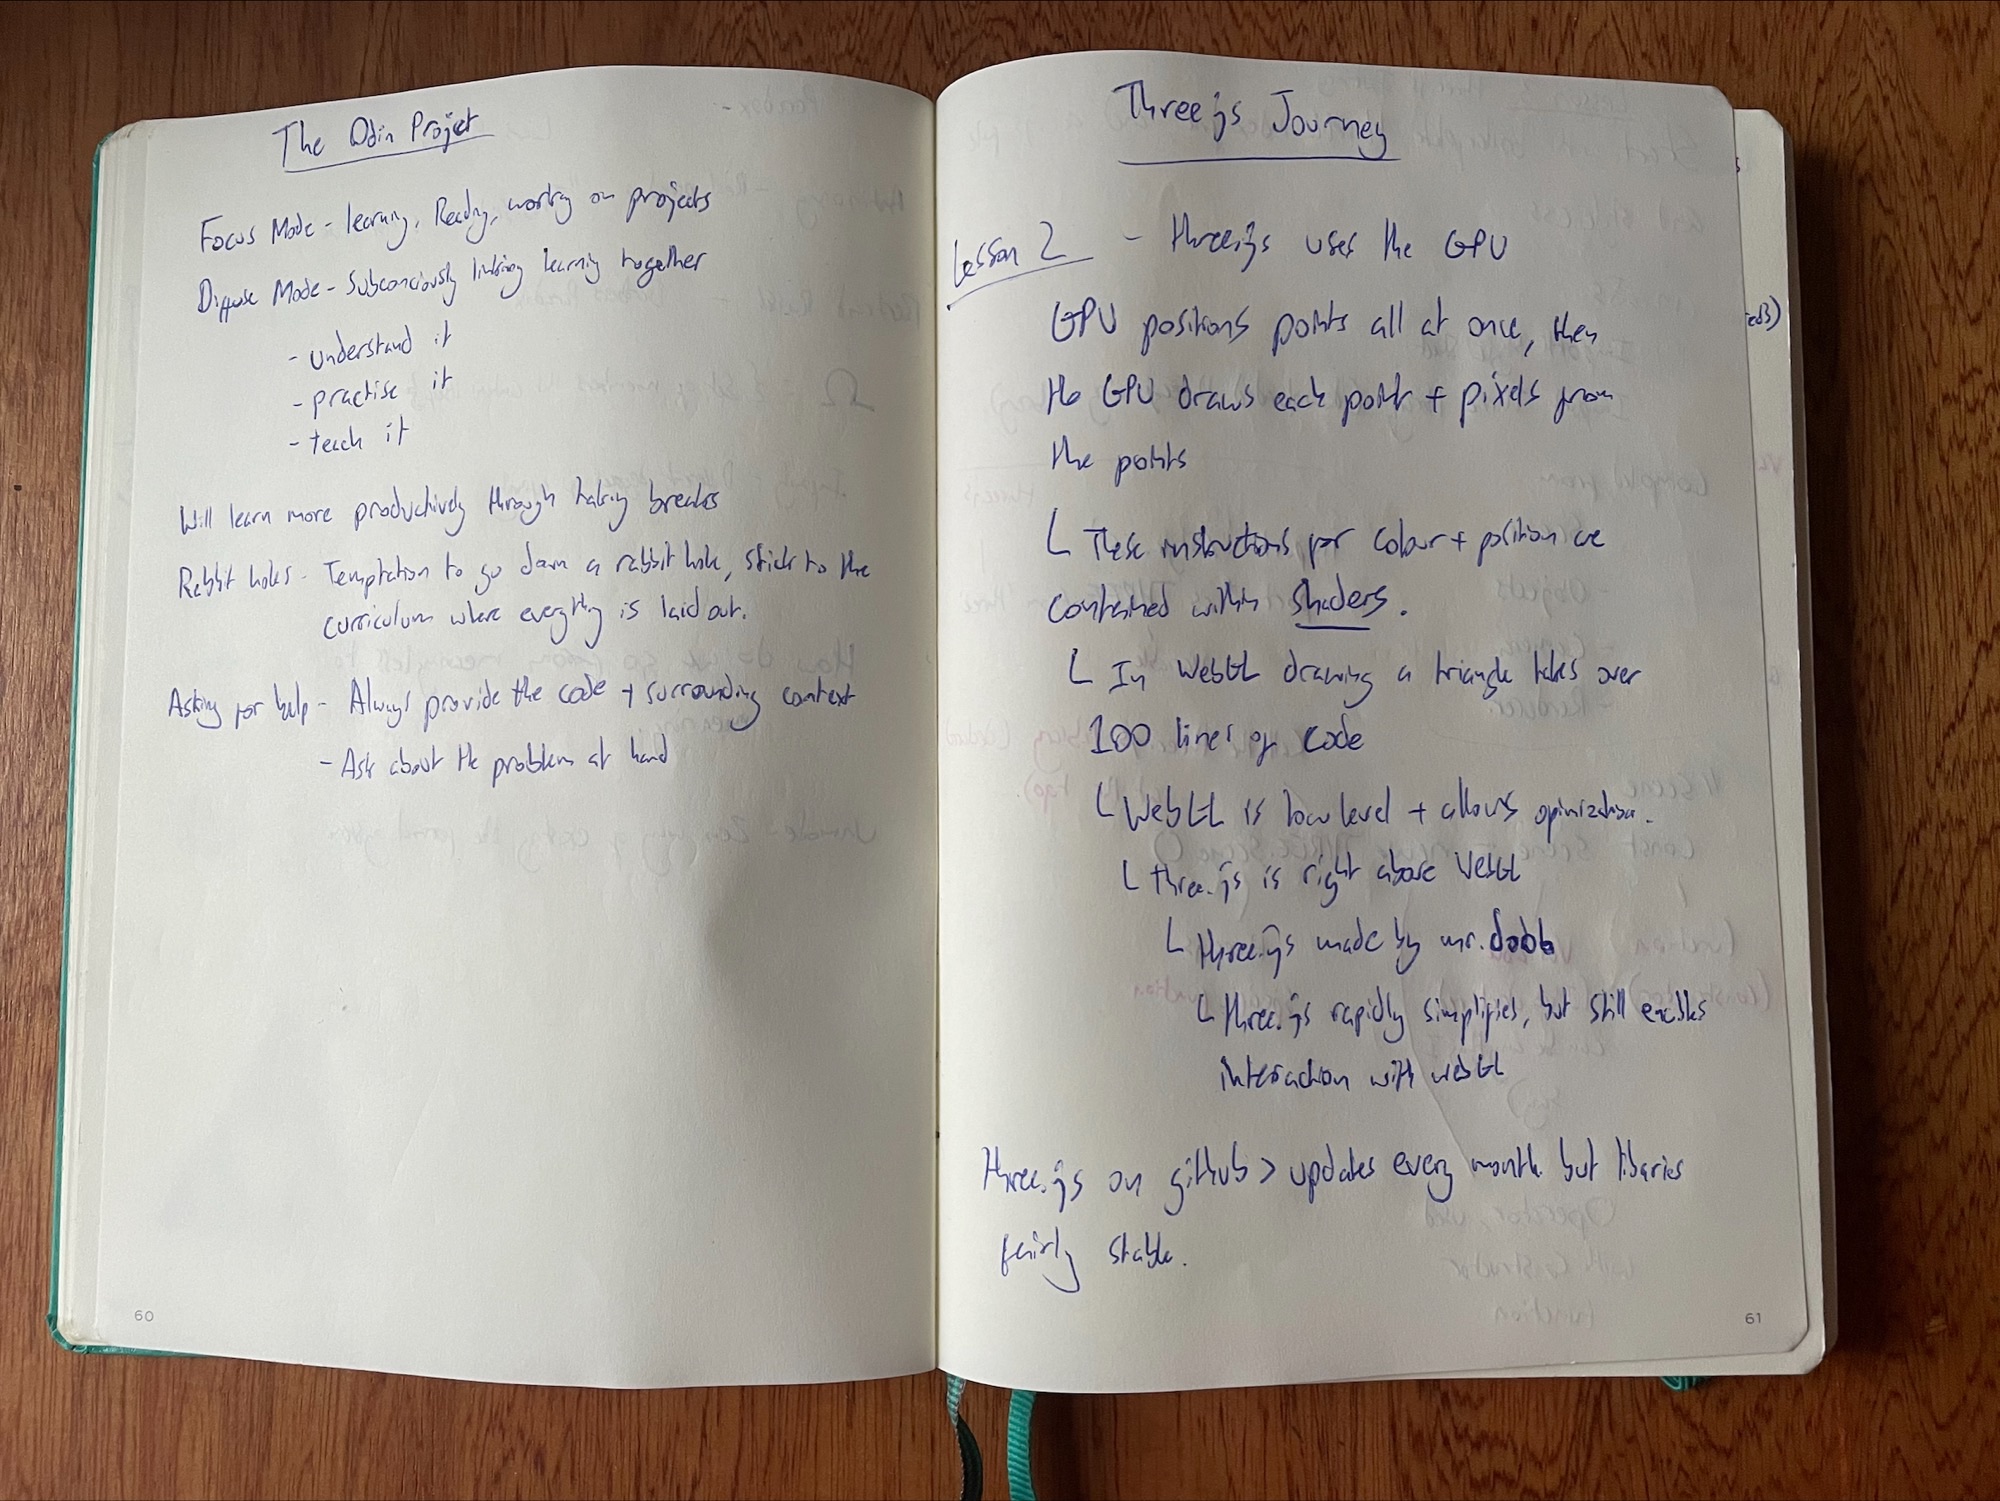 The Odin Project
Focus Mode - learning, Reading, working on projects
Diffuse Mode - Subconciously linking learning together
- understand it
- practise it
- teach it
Will learn more productively through taking breaks
Rabbit holes - Temptation to go down a rabbit hole, stick to the
curriculum where everything is laid out.
Asking for help - Always provide the code + surrounding context
- Ask about the problem at hand
60
Three.js Journey
Lesson 2 - three.js uses the GPU
GPU positions points all at once, then
the GPU draws each point + pixels from
the points
These instructions for colour + position are
contained within shaders.
In WebGL drawing a triangle takes over
100 lines of code
WebGL is low level + allows opimization.
three.js is right above WebGL
three.js made by mr.doob
three.js rapidly simplifies, but still enables
interaction with webGL
three.js on github > updates every month. but libaries
fairly stable.
61